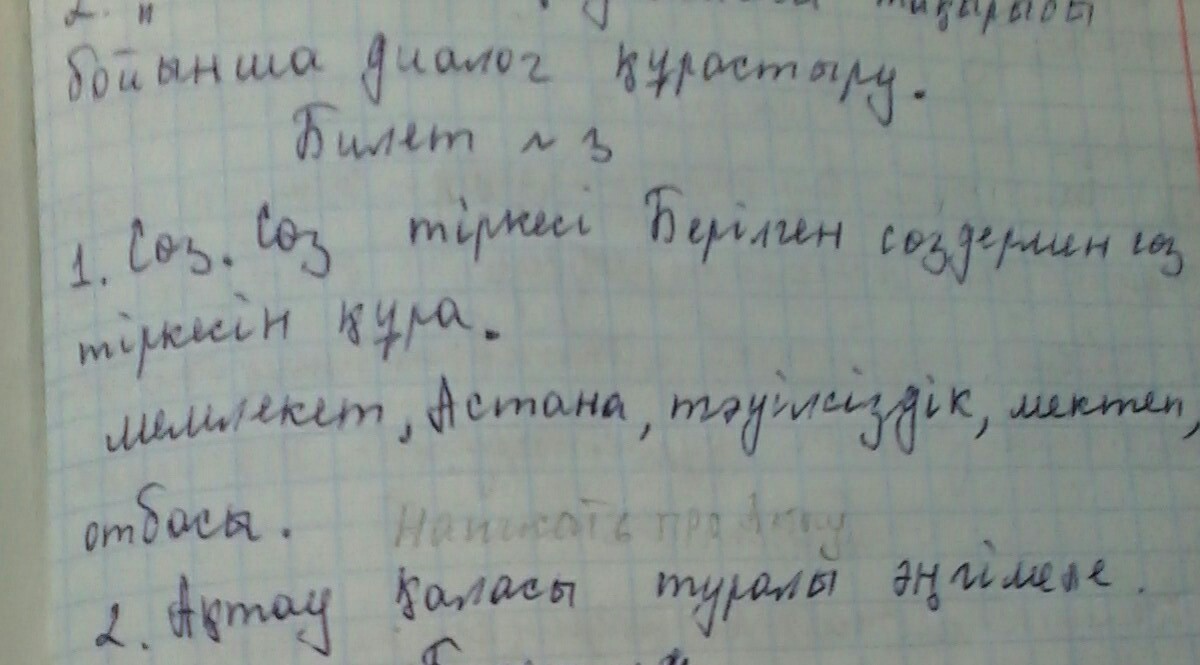 2. "
тақырыбы
бойынша диалог құрастыру.
Билет ~ 3
1. Сөз. Сөз тіркесі Берілген сөздермен сөз
тіркесін құра.
мемлекет, Астана, тәуілсіздік, мектеп,
отбасы. Написать про
2. Ақтау қаласы туралы әңгімеле.